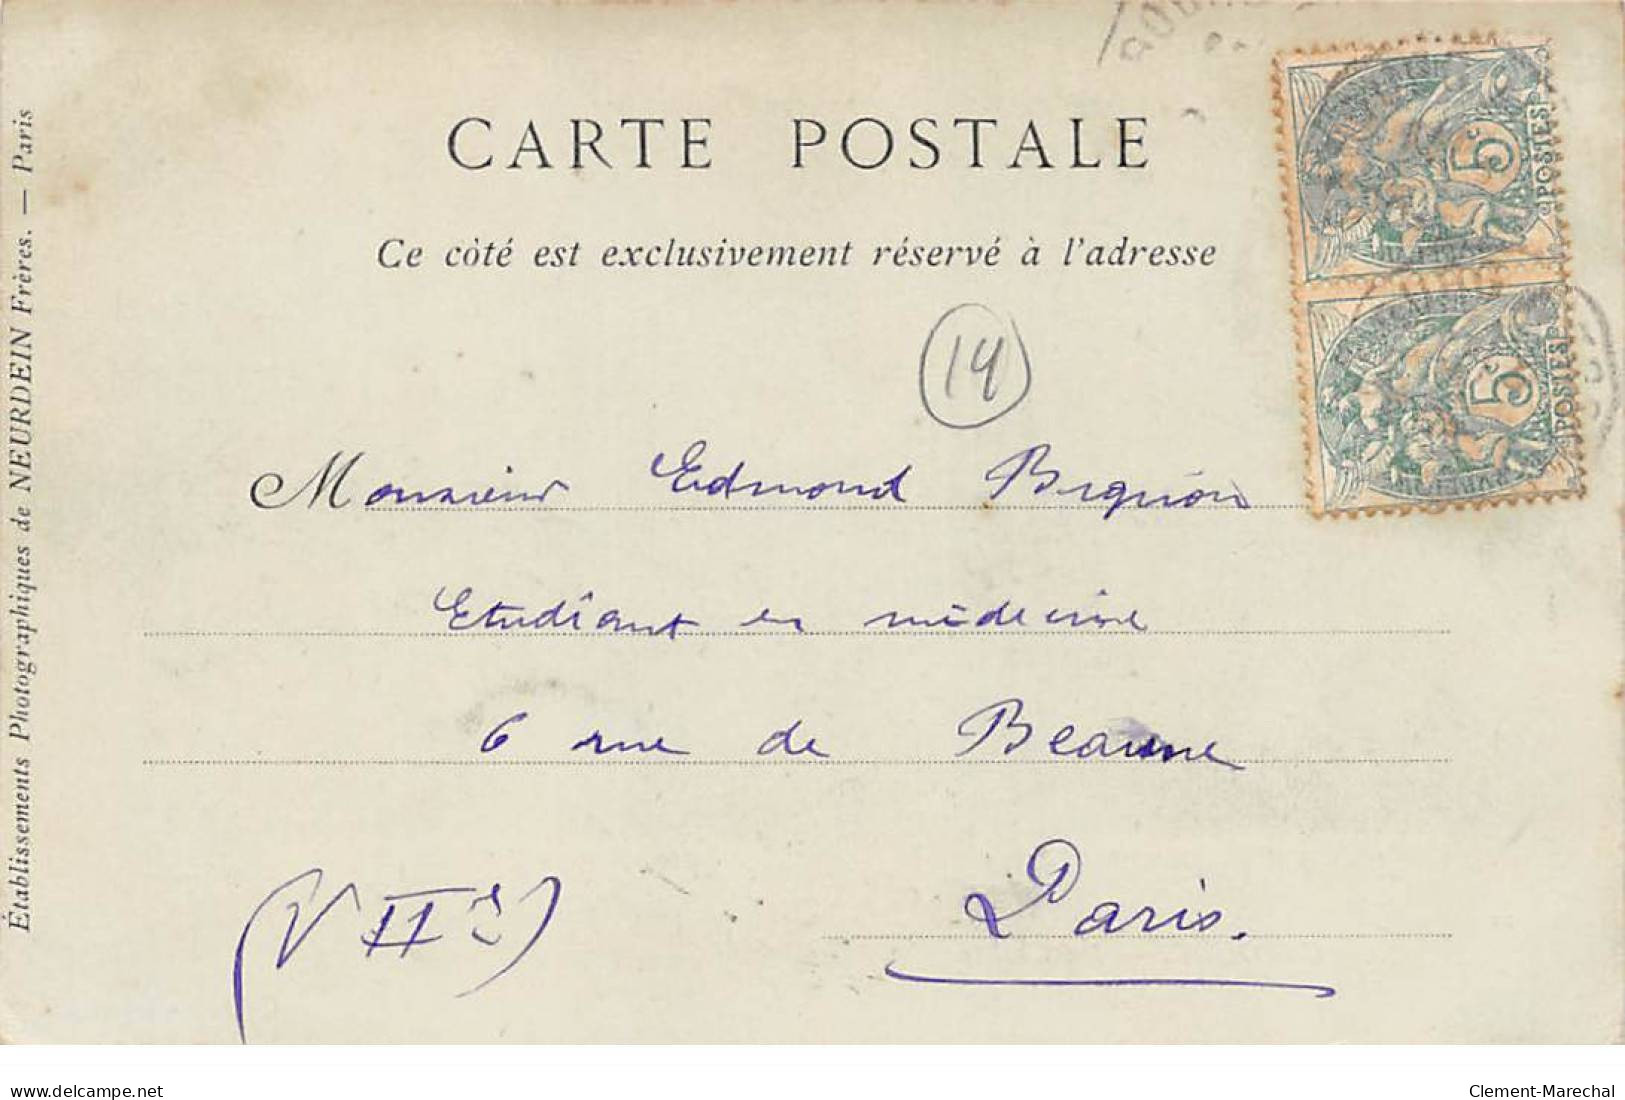 CARTE POSTALE
Ce côté est exclusivement réservé à l'adresse
14
Monsieur Edmond Bignon
Etudiant en médecine
6 rue de Beaune
Paris.
(VIIe)
Établissements Photographiques de NEURDEIN Frères. — Paris
5c POSTES
5c POSTES
www.delcampe.net
Clement-Marechal